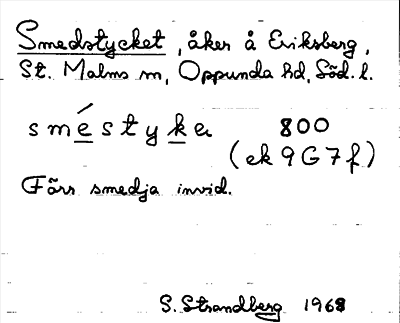 Smedstycket, åker å Eriksberg,
St. Malms sn, Oppunda hd, Söd. l.
smé̱styḵa 800
(ek 9G7f)
Förr smedja invid.
S. Strandberg 1968